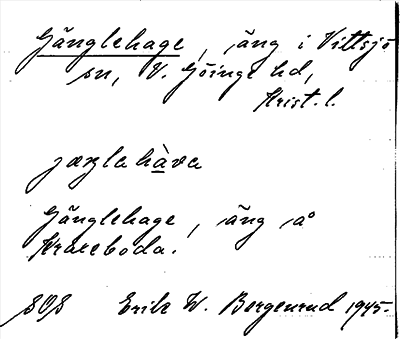 Gänglehage, äng i Vittsjö
sn, V. Göinge hd,
Krist. l.
jæŋla hàva
Gänglehage, äng å
Krareboda.
SOS Erik W. Bergenrud 1945.